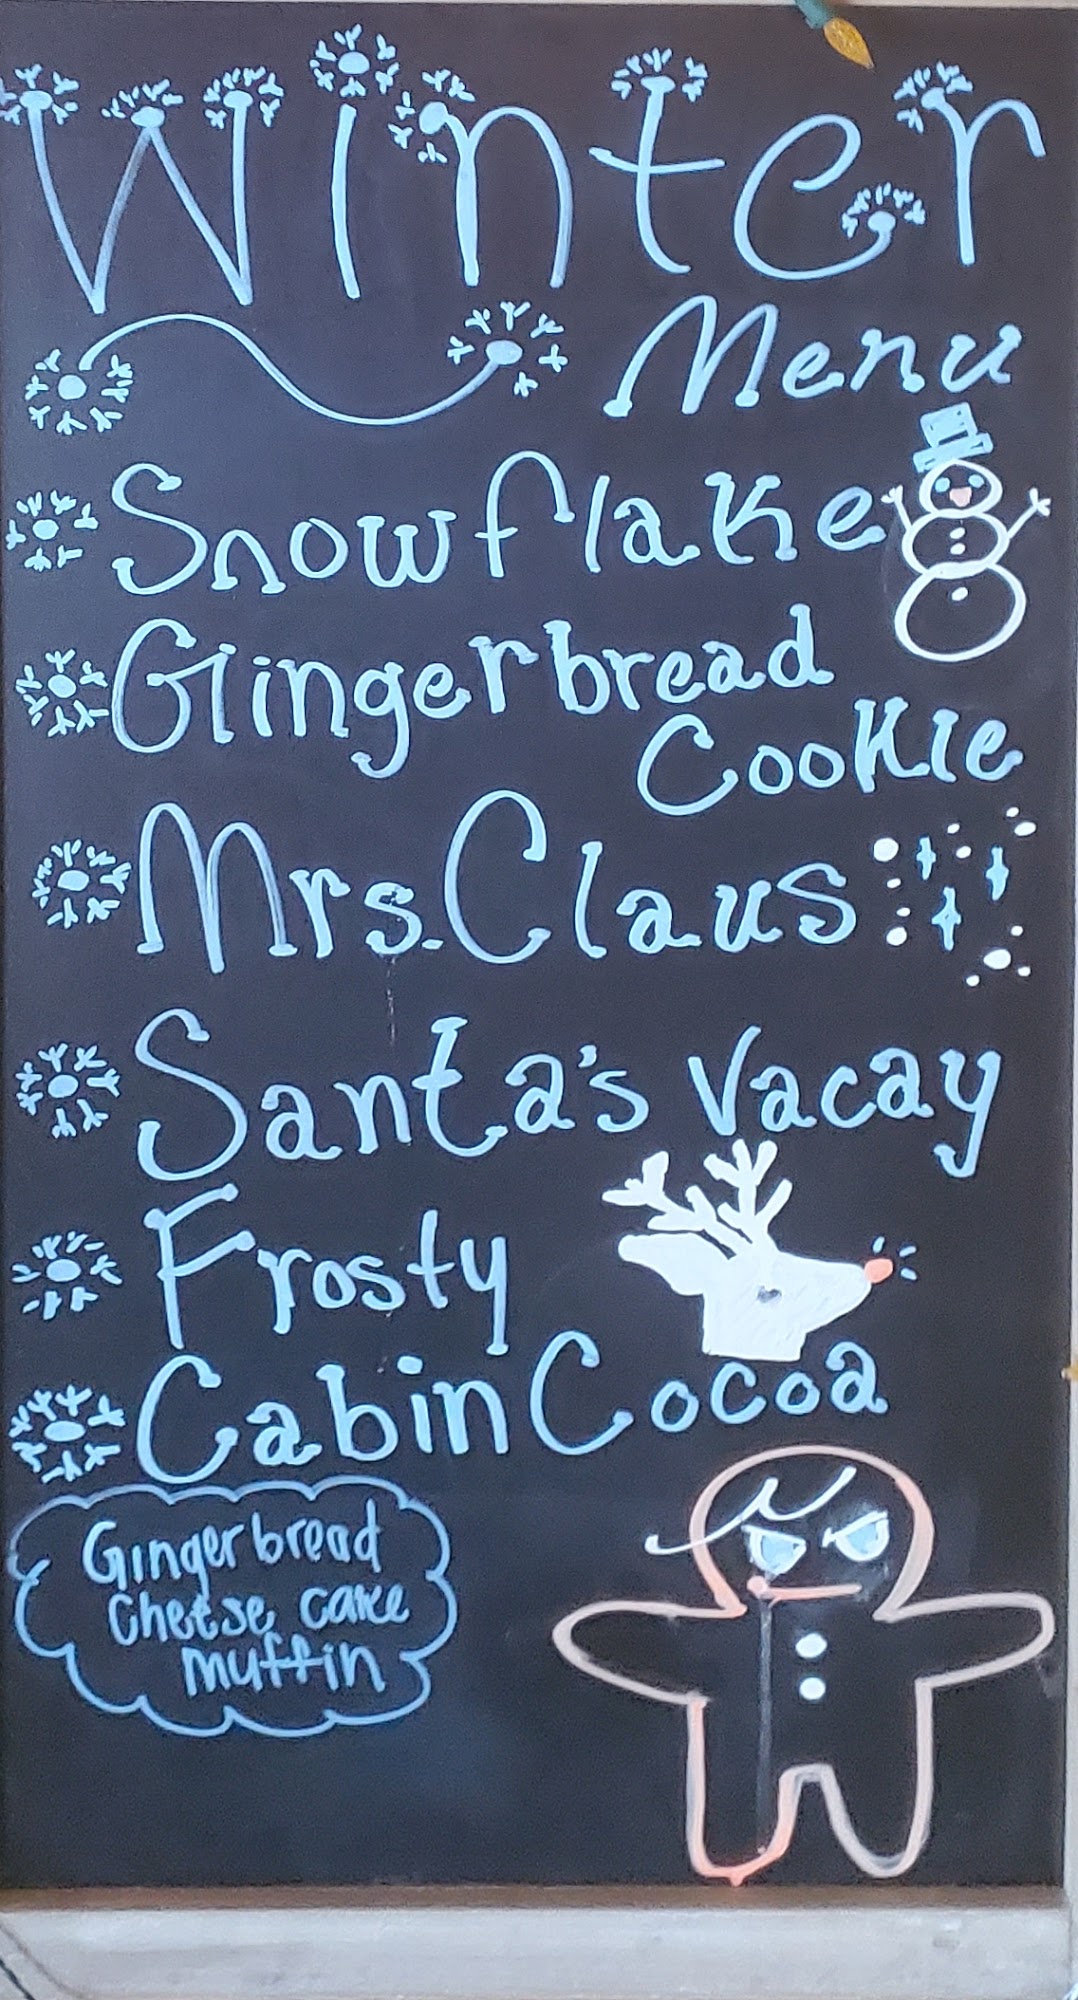 Winter
Menu
Snowflake
Gingerbread
Cookie
Mrs. Claus
Santa's Vacay
Frosty
Cabin Cocoa
Gingerbread
cheese cake
muffin